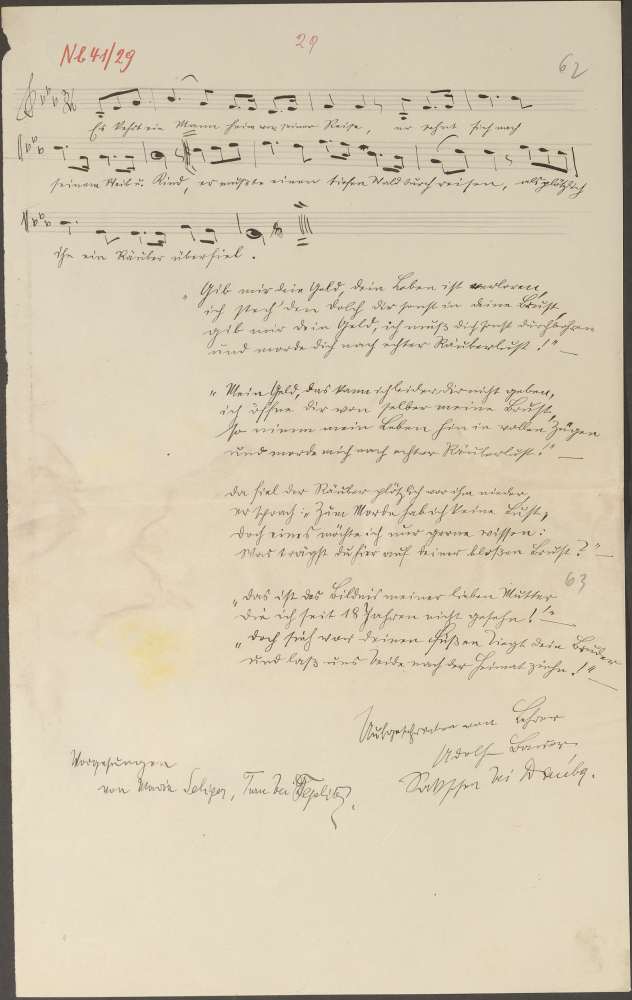 Nb 41/29
29
62
Es kehrt ein Mann heim von seiner Reise, er sehnt sich nach
seinem Weib u. Kind, er mußte einen tiefen Wald durchreisen, als plötzlich
ihn ein Räuber überfiel.
"Gib mir dein Geld, dein Leben ist verloren,
ich stech' den Dolch dir sonst in deine Brust,
gib mir dein Geld, ich muß dich sonst durchbohren
und morde dich nach echter Räuberlust!" —
"Mein Geld, das kann ich leider dir nicht geben,
ich öffne dir von selber meine Brust,
so nimm mein Leben hin in vollen Zügen
und morde mich nach echter Räuberlust!" —
Da fiel der Räuber plötzlich vor ihm nieder,
er sprach: "Zum Morde hab ich keine Lust,
doch eines möchte ich nur gerne wissen:
Was trägst du hier auf deiner bloßen Brust?" —
63
"Das ist das Bildnis meiner lieben Mutter
die ich seit 18 Jahren nicht gesehn!" —
"Doch sieh vor deinen Füßen liegt dein Bruder
und laß uns beide nach der Heimat ziehn!" —
Aufgeschrieben von Lehrer
Adolf Bauer,
bei Dauba.
Vorgesungen
von Marie Turn bei Teplitz.